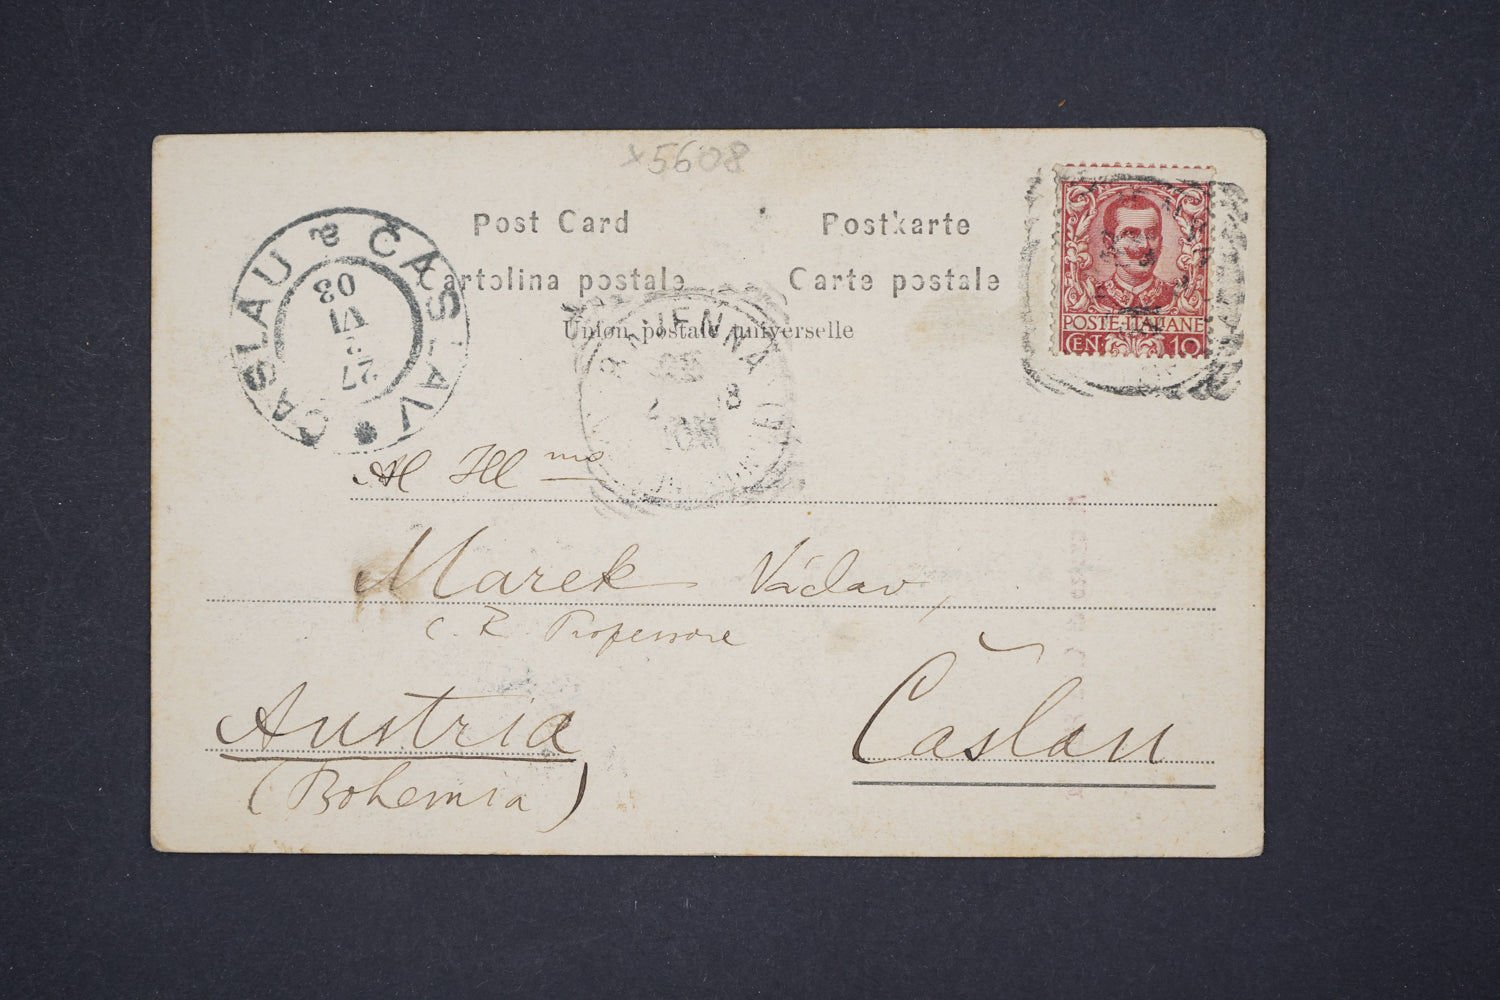 x5608
Post Card
Postkarte
Cartolina postale
Carte postale
Union postale universelle
ČASLAU ČÁSLAV
27
VI
03
8
POSTE ITALIANE
CEN. 10
Al Ill mo
Marek Václav,
C. R. Professore
Austria
Čáslau
(Bohemia)